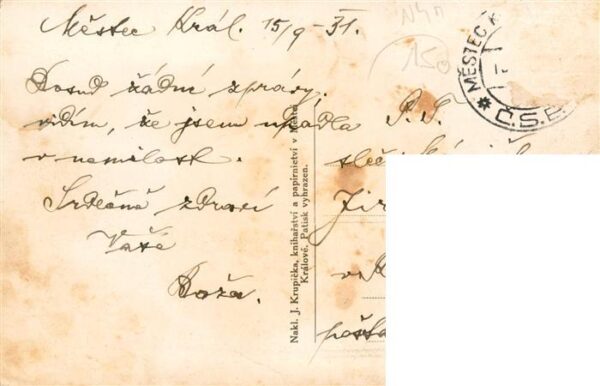 Městec Král. 15/9 - 31.
Dosud žádné zprávy.
vidím, že jsem upadla
v nemilost.
Srdečně zdraví
Vaše
Boža.
Nakl. J. Krupička, knihařství a papírnictví v Městci
Králové. Patisk vyhrazen.
150
MĚSTEC K
Č.S.